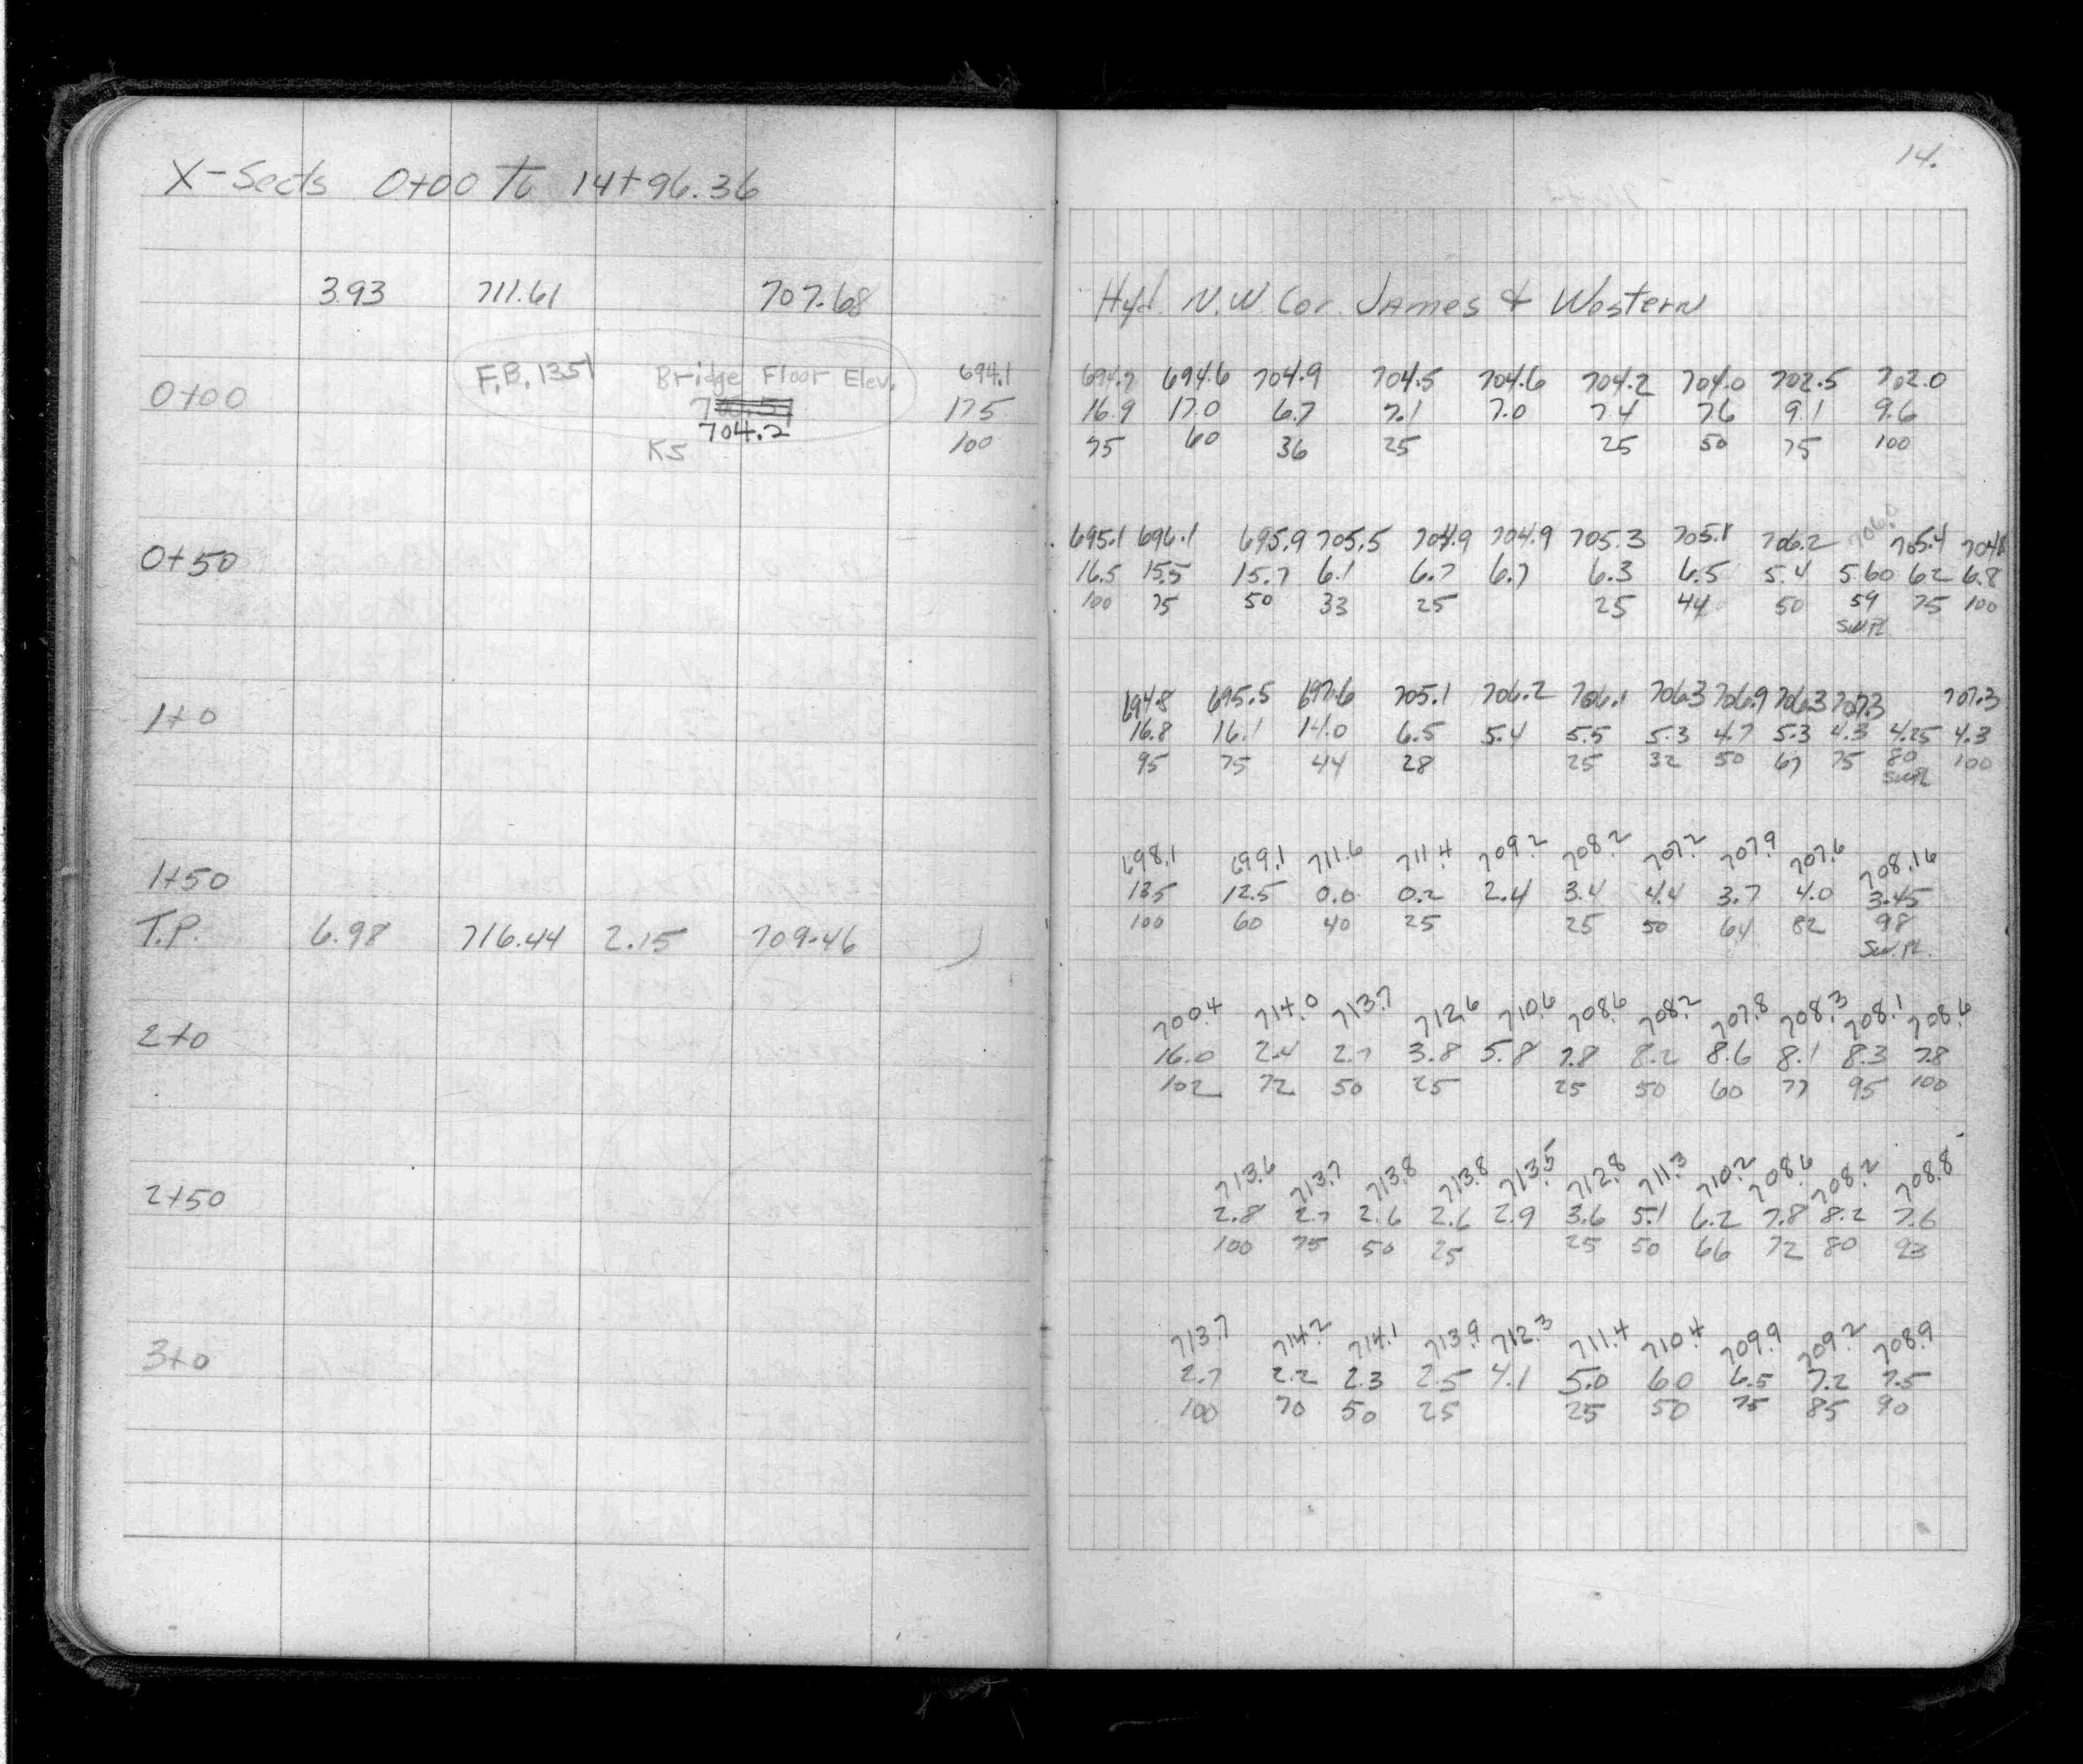 14.
X-Sects 0+00 To 14+96.36
3.93 711.61 707.68 Hyd. N.W. Cor. James & Western
F.B. 1351 Bridge Floor Elev. 694.1 694.7 694.6 704.9 704.5 704.6 704.2 704.0 702.5 702.0
0+00 17.5 16.9 17.0 6.7 7.1 7.0 7.4 7.6 9.1 9.6
704.2
KS 100 75 60 36 25 25 50 75 100
695.1 696.1 695.9 705.5 704.9 704.9 705.3 705.1 706.2 706.0 705.4 704.8
0+50 16.5 15.5 15.7 6.1 6.7 6.7 6.3 6.5 5.4 5.60 6.2 6.8
100 75 50 33 25 25 44 50 59 75 100
SW.PL.
694.8 695.5 697.6 705.1 706.2 706.1 706.3 706.9 706.3 707.3 707.3
1+0 16.8 16.1 14.0 6.5 5.4 5.5 5.3 4.7 5.3 4.3 4.25 4.3
95 75 44 28 25 32 50 67 75 80 100
SW.PL
698.1 699.1 711.6 711.4 709.2 708.2 707.2 707.9 707.6 708.16
1+50 13.5 12.5 0.0 0.2 2.4 3.4 4.4 3.7 4.0 3.45
T.P. 6.98 716.44 2.15 709.46 100 60 40 25 25 50 64 82 98
SW.PL.
700.4 714.0 713.7 712.6 710.6 708.6 708.2 707.8 708.3 708.1 708.6
2+0 16.0 2.4 2.7 3.8 5.8 7.8 8.2 8.6 8.1 8.3 7.8
102 72 50 25 25 50 60 77 95 100
713.6 713.7 713.8 713.8 713.5 712.8 711.3 710.2 708.6 708.2 708.8
2+50 2.8 2.7 2.6 2.6 2.9 3.6 5.1 6.2 7.8 8.2 7.6
100 75 50 25 25 50 66 72 80 93
713.7 714.2 714.1 713.9 712.3 711.4 710.4 709.9 709.2 708.9
3+0 2.7 2.2 2.3 2.5 4.1 5.0 6.0 6.5 7.2 7.5
100 70 50 25 25 50 75 85 90